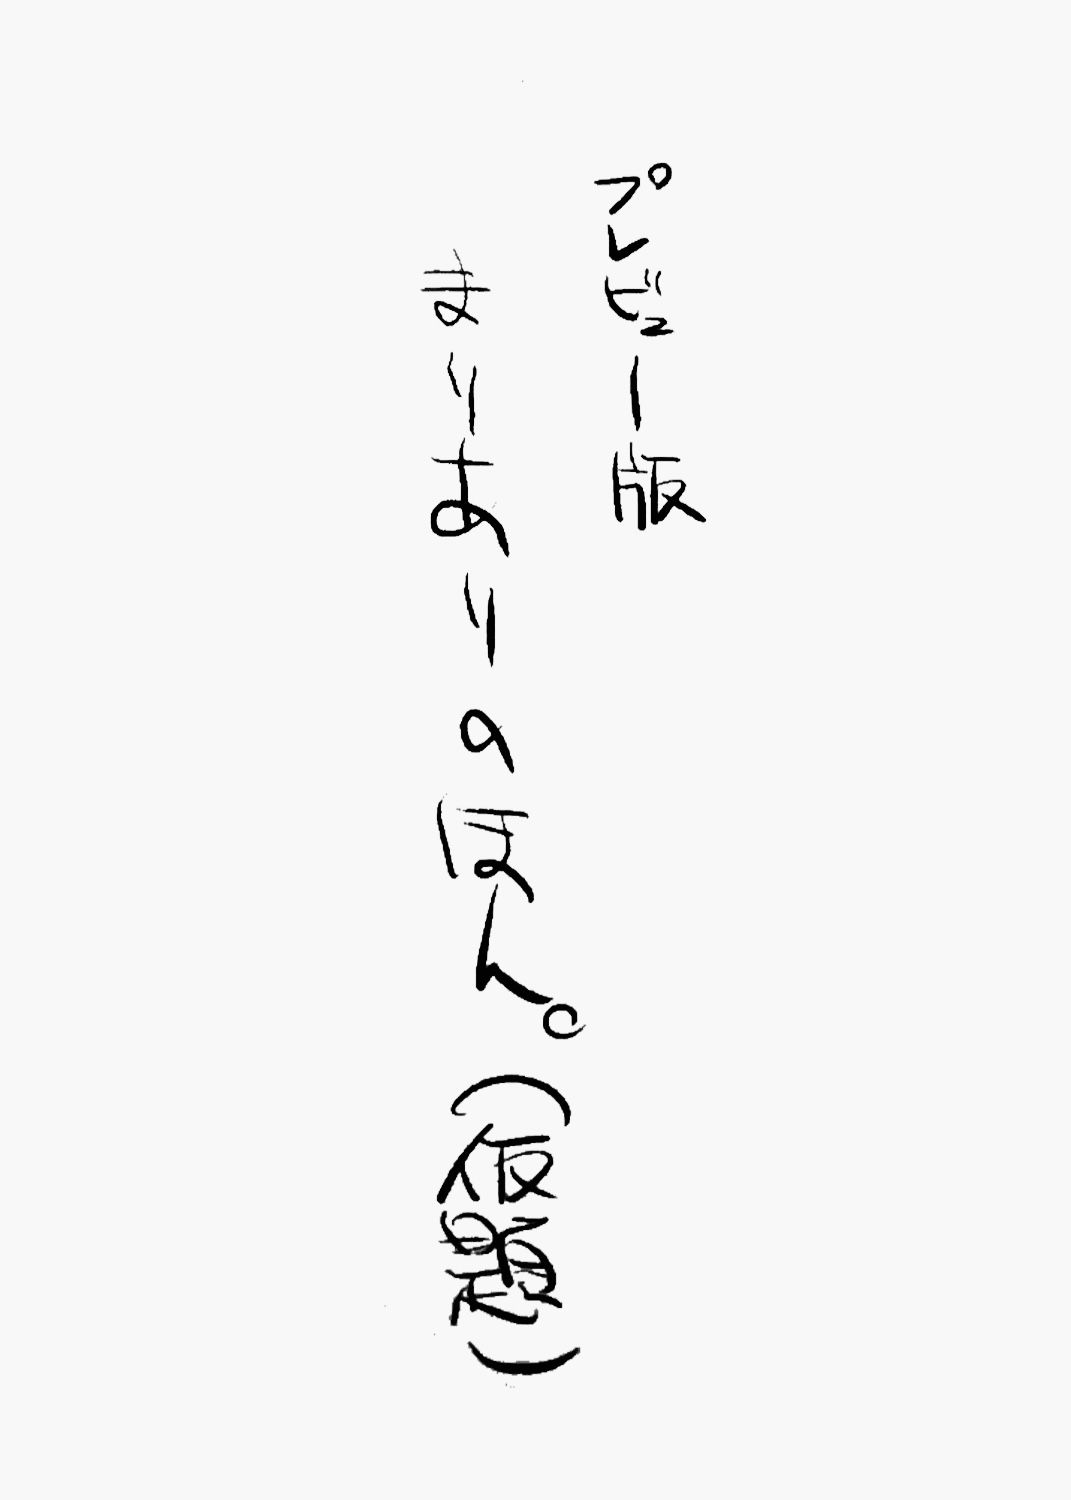 プレビュー版
まりありのほん。(仮題)